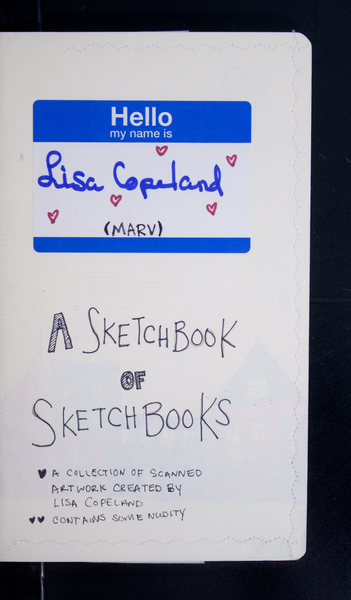 Hello
my name is
Lisa Copeland
(MARV)
A SKETCHBOOK
OF
SKETCHBOOKS
♥ A COLLECTION OF SCANNED
ARTWORK CREATED BY
LISA COPELAND
♥♥ CONTAINS SOME NUDITY